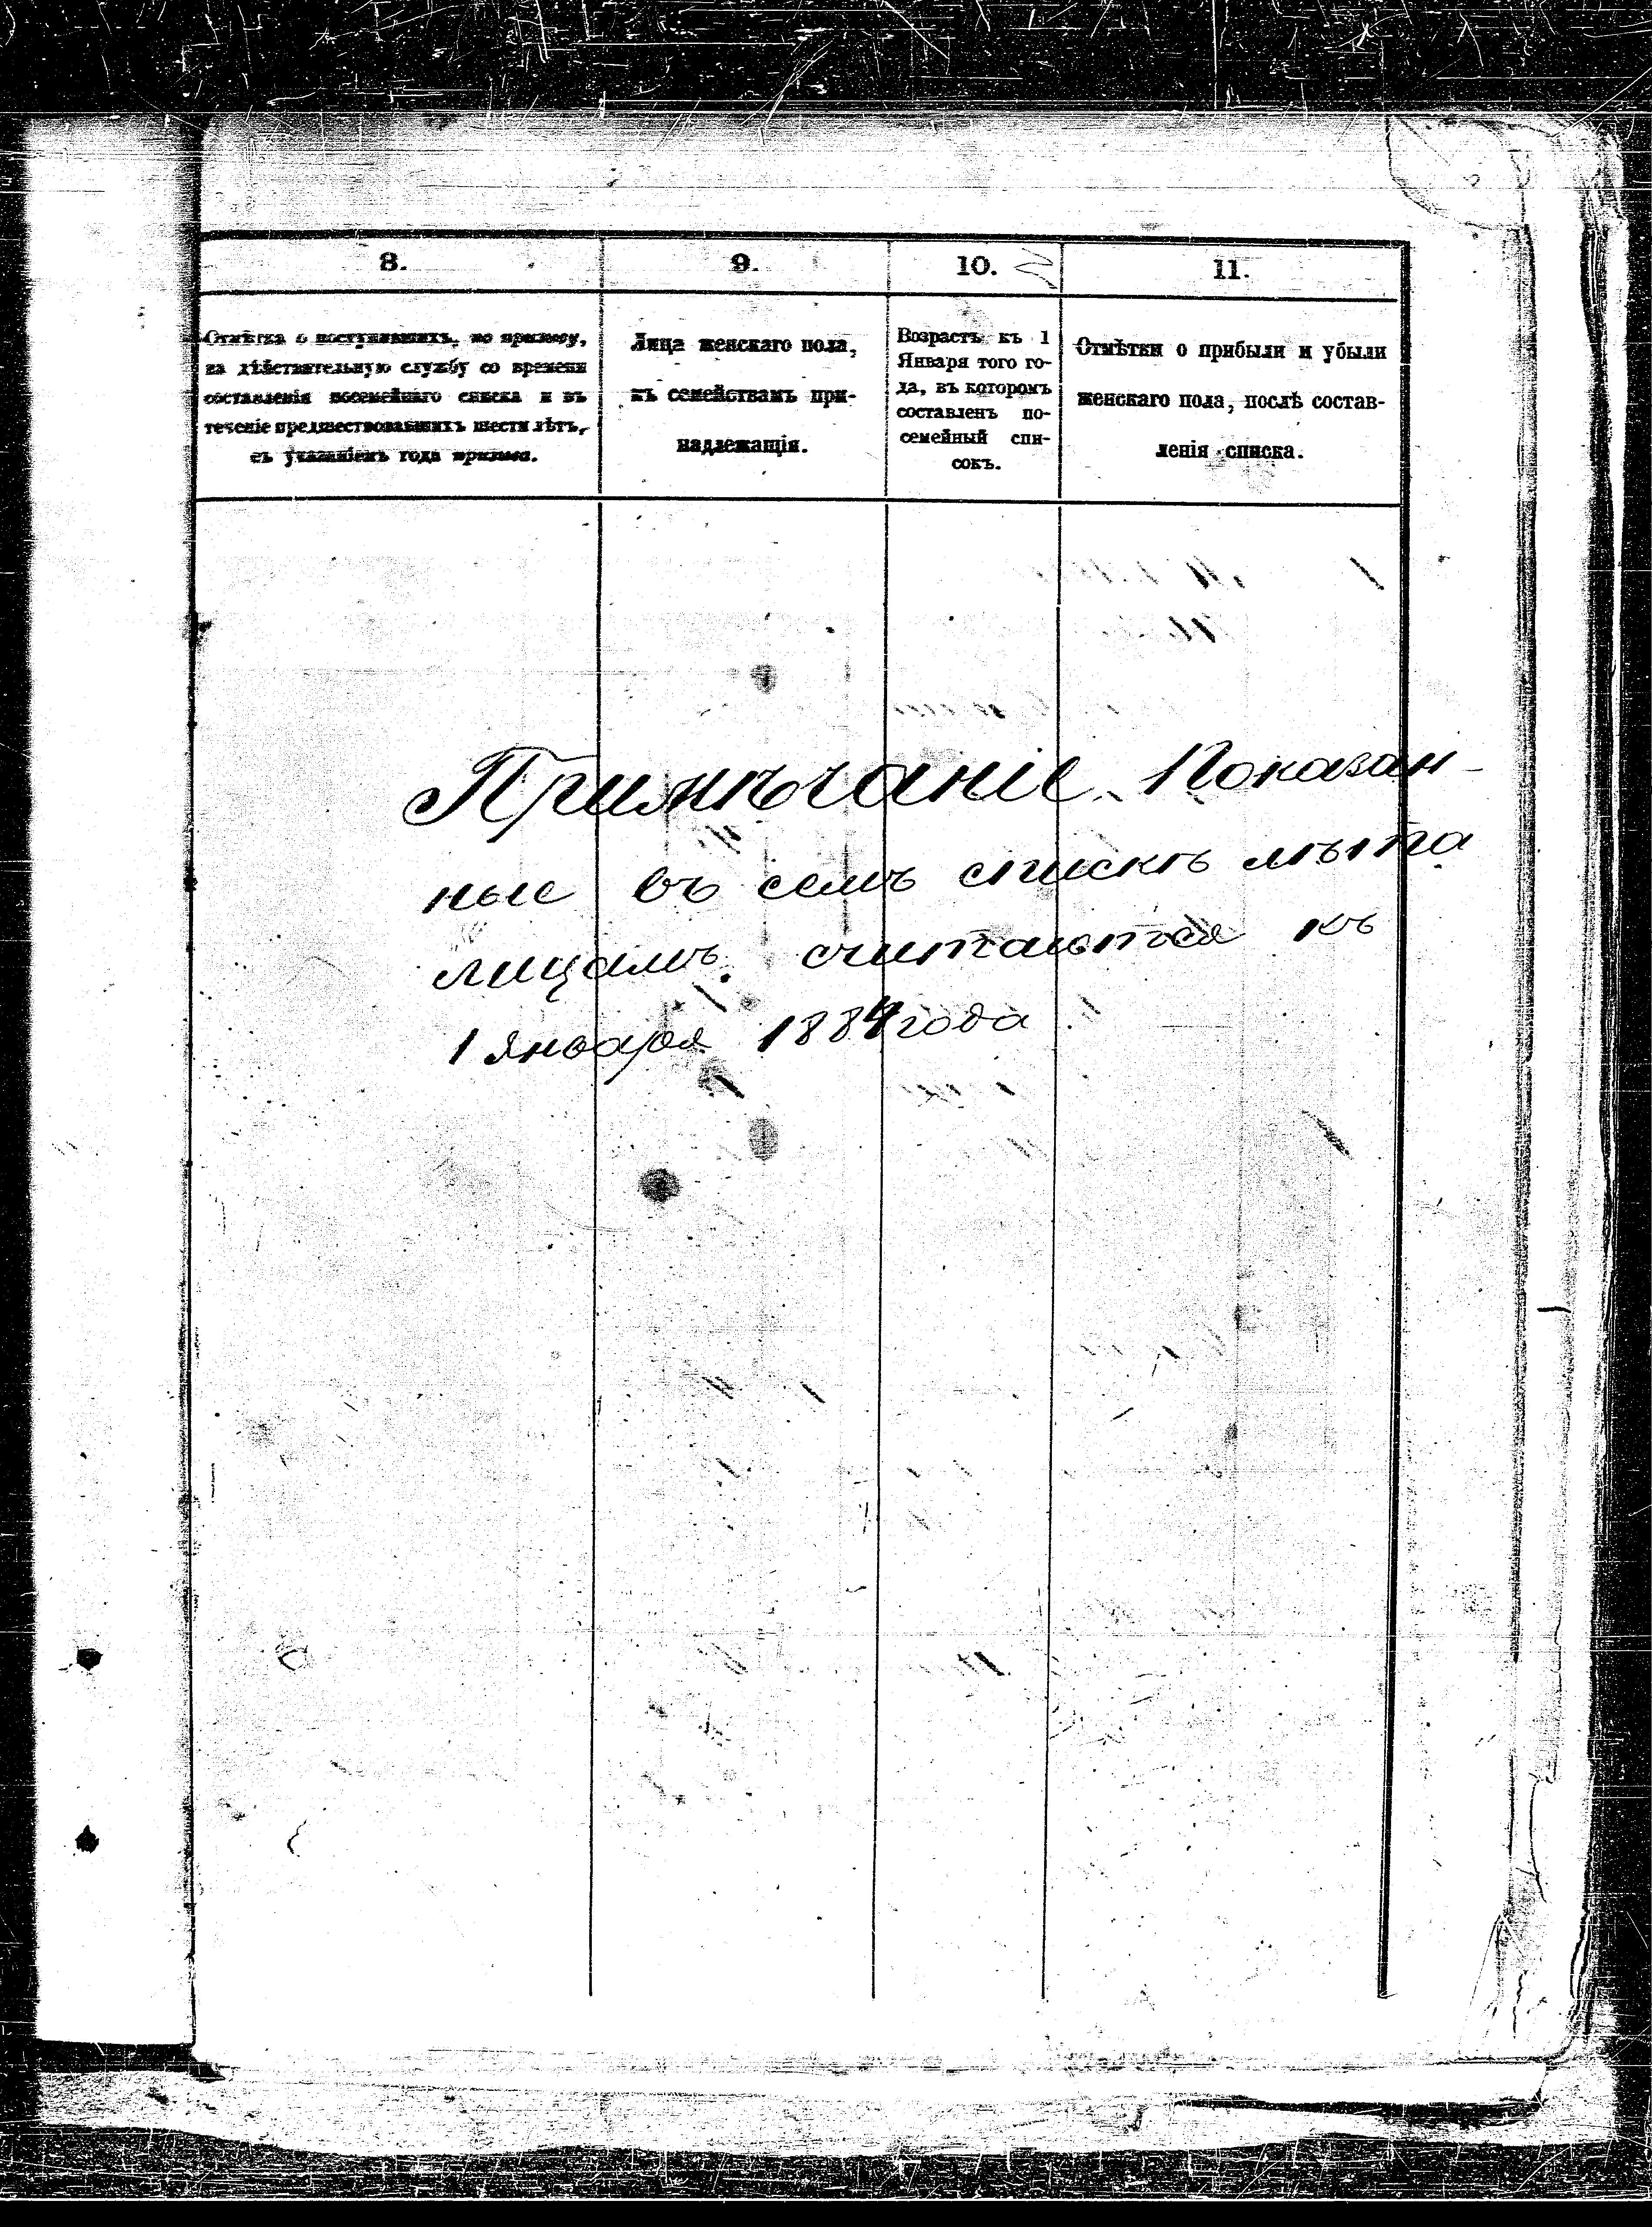 8.
9.
10.
11.
Отмѣтка о поступившихъ, по призыву,
на дѣйствительную службу со времени
составленія посемейнаго списка и въ
теченіе предшествовавшихъ шести лѣтъ,
съ указаніемъ года призыва.
Лица женскаго пола,
къ семействамъ при-
надлежащія.
Возрастъ къ 1
Января того го-
да, въ которомъ
составленъ по-
семейный спи-
сокъ.
Отмѣтки о прибыли и убыли
женскаго пола, послѣ состав-
ленія списка.
Примѣчаніе. Показан-
ные въ семъ спискѣ лѣта
лицамъ считаются къ
1 января 1884 года